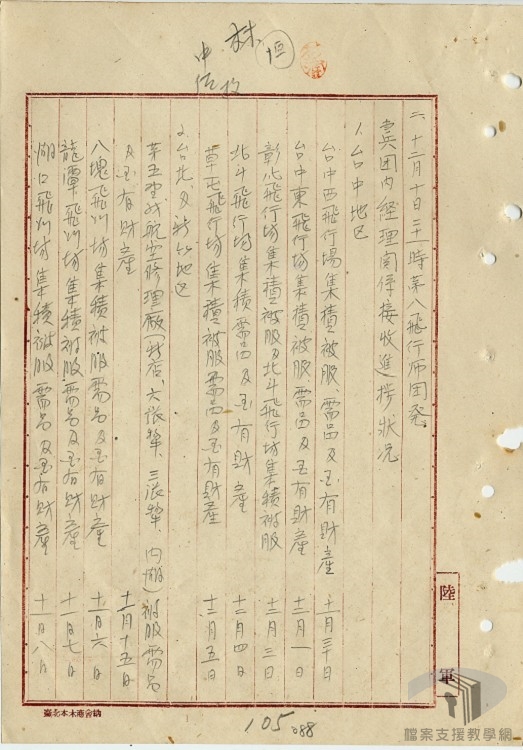 林
恒
二、十二月十日二十一時第八飛行師団発
兵団内経理関係接收進捗状况
1.台中地区
台中西飛行場集積被服、需品及国有財産 十一月三十日
台中東飛行場集積被服需品及国有財産 十二月一日
彰化飛行場集積被服及北斗飛行場集積被服 十二月三日
北斗飛行場集積需品及国有財産 十二月四日
草屯飛行場集積被服需品及国有財産 十二月五日
2.台北及新竹地区
第五野战航空修理廠(新店、六張犂、三張犂、内湖)被服需品
及国有財産 十一月十五日
八塊飛行場集積被服需品及国有財産 十一月六日
龍潭飛行場集積被服需品及国有財産 十一月七日
湖口飛行場集積被服需品及国有財産 十一月八日
陸軍
臺北本木商會納
105
088
檔案支援教學網